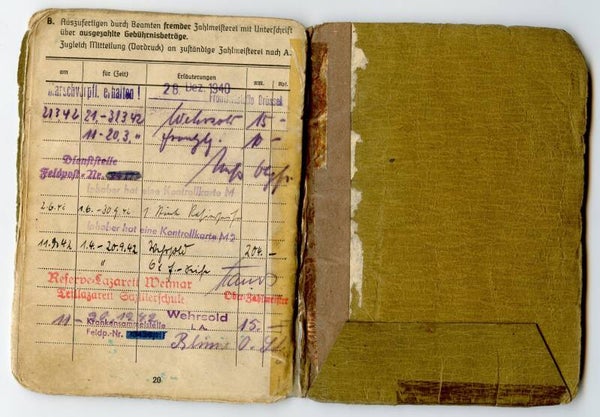 B. Auszufertigen durch Beamten fremder Zahlmeisterei mit Unterschrift
über ausgezahlte Gebührnisbeträge.
Zugleich Mitteilung (Vordruck) an zuständige Zahlmeisterei nach A.
am für (Zeit) Erläuterungen RM. Rpf.
Marschverpfl. erhalten! 28. Dez. 1940
21.3.42 21.-31.3.42 Wehrsold 15 -
11.-20.3. 10 -
Dienststelle
Feldpost-Nr.
Inhaber hat eine Kontrollkarte M
2.6.42 1.6.-30.9.42 1 Stück
Inhaber hat eine Kontrollkarte M
11.9.42 1.4.-20.9.42 Wehrsold 204.-
"
Reserve-Lazarett Weimar
Teillazarett Sattlerschule Ober-Zahlmeister
11 - 20. 1942 Wehrsold 15.-
Krankensammelstelle
Feldp.-Nr.
20